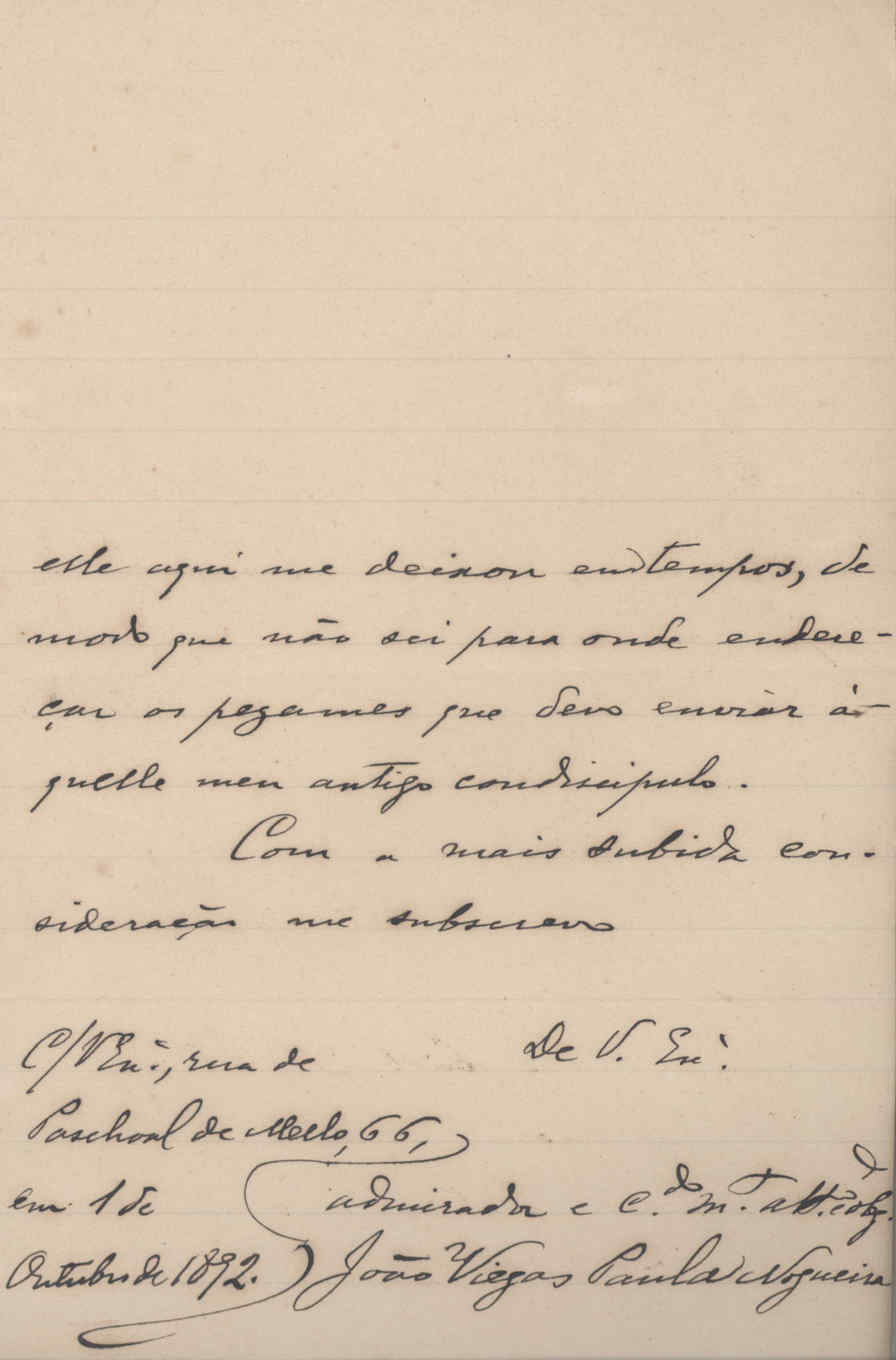 elle aqui me deixou em tempos, de
modo que não sei para onde endere-
çar os pezames que devo enviar á-
quelle meu antigo condiscipulo.
Com a mais subida con-
sideração me subscrevo
De V. Exª.
C/V Exª., rua de
Paschoal de Mello, 66,
em 1 de
Outubro de 1892.
admirador e c.do m.t att. e obg.d
João Viegas Paula Nogueira